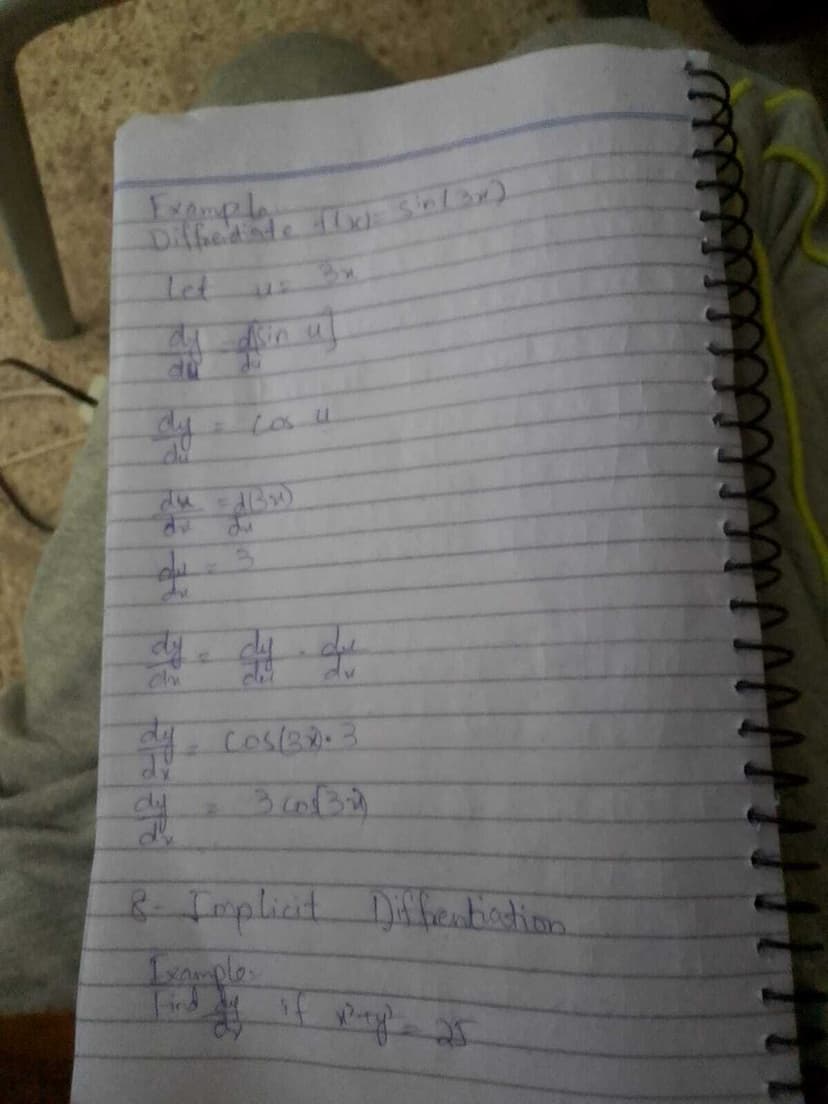 Example
Diffreidiate f(x)= sin(3x)
Let u= 3x
dy/du = d[sin u]/du
dy/du = cos u
du/dx = d(3x)/dx
du/dx = 3
dy/dx = dy/du . du/dx
dy/dx = cos(3x).3
dy/dx = 3 cos(3x)
8- Implicit Diffrentiation
Example:
Find dy/dx if x²+y² = 25